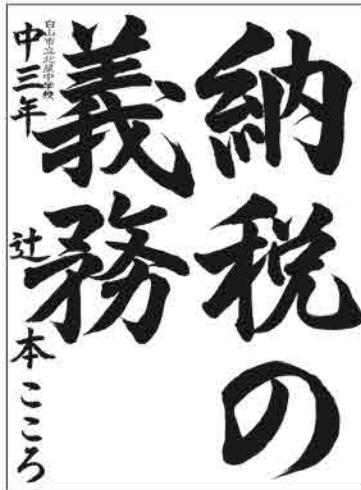 納税の
義務
白山市立北星中学校
中三年 辻本こころ